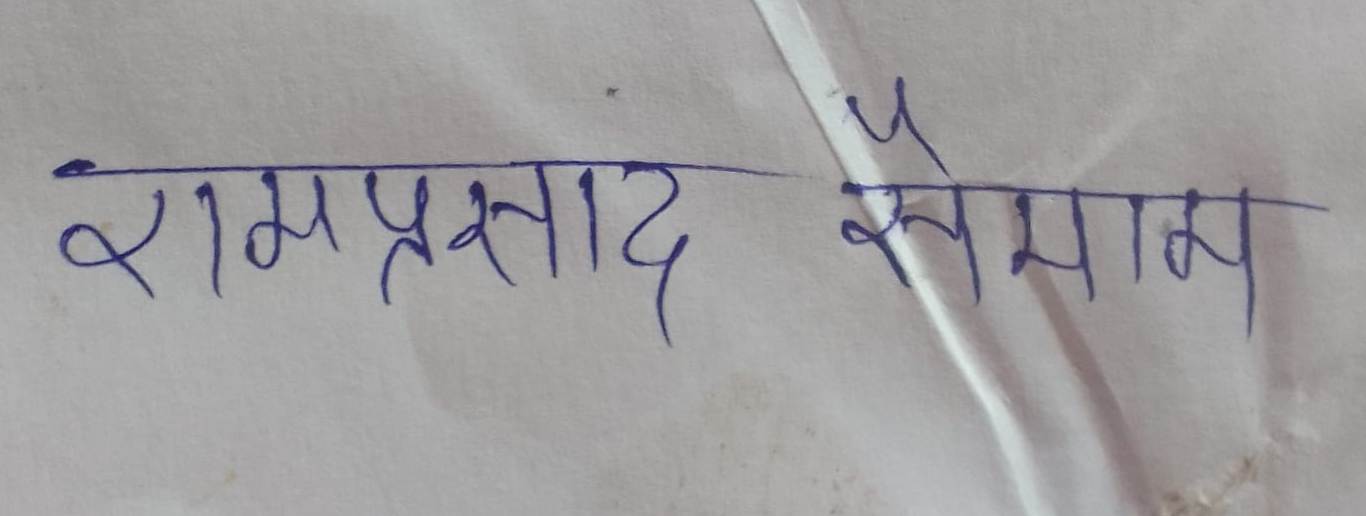 रामप्रसाद सैयाम